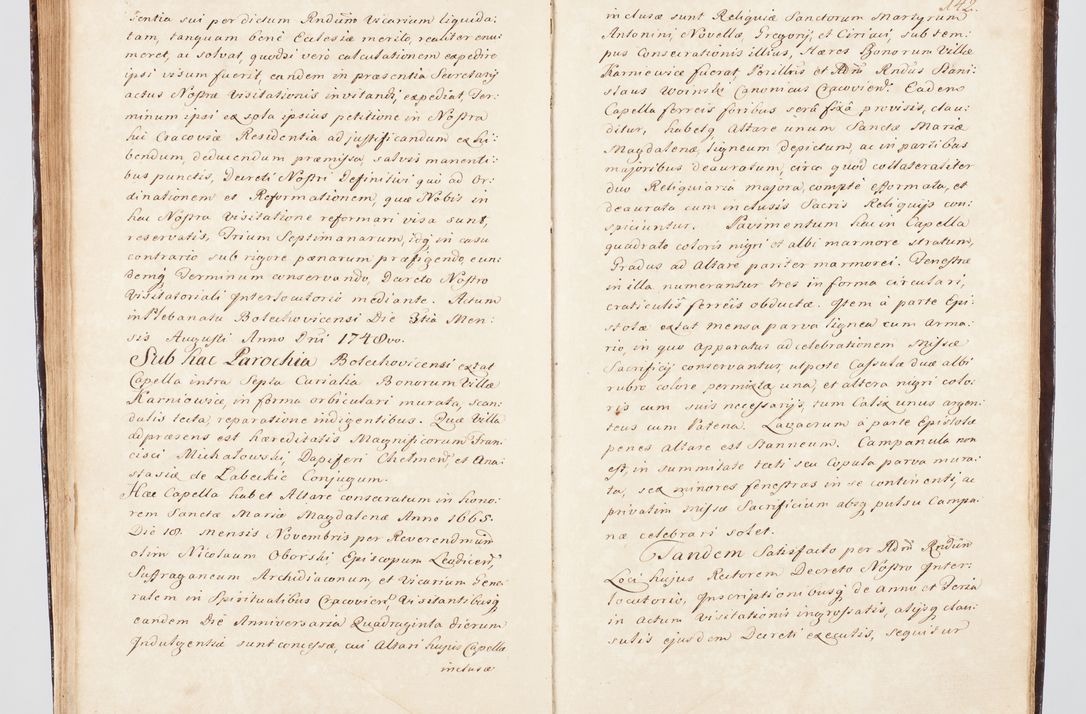 tentia sui per dictum Rndum Vicarium liquida:
tam, tanquam beni Ecclesiæ merito, realiter enu:
meret, ac solvat, quodsi verò calculationem expedire
ipsi visum fuerit, eandem in præsentia Secretarij
actus Nostræ Visitationis invitandi, expediat, Ter:
minum ipsi ex sola ipsius petitione in Nostra
hic Cracoviæ Residentia ad justificandum exhi:
bendum, deducendum præmissa, salvis manenti:
bus punctis, Decreti Nostri Definitivi qui ad Or:
dinationem et Reformationem, quæ Nobis in
hac Nostra Visitatione reformari visa sunt,
reservatis, Trium Septimanarum, idq in casu
contrario sub rigore pænarum præfigendo eun:
demq Terminum conservando, Decreto Nostro
Visitatoriali Interlocutorio mediante. Actum
in Plebanatu Bolechovicensi Die 3tia Men:
sis Augusti Anno Dni 1748vo.
Sub hac Parochia Bolechovicensi extat
Capella intra Septa Curialia Bonorum Villæ
Karniowice, in forma orbiculari murata, scan:
dulis tecta, reparatione indigentibus. Quæ Villa
ad præsens est hæreditatis Magnificorum Fran:
cisci Michałowski, Dapiferi Chelmen, et Ana:
stasiæ de Łabeckie Conjugum.
Hæc Capella habet Altare consecratum in hono:
rem Sanctæ Mariæ Magdalenæ Anno 1665.
Die 18. Mensis Novembris per Reverendmum
olim Nicolaum Oborski Episcopum Leodicen,
Suffraganeum Archidiaconum, et Vicarium Gene:
ralem in Spiritualibus Cracovien, Visitantibusq
eandem Die Anniversaria Quadraginta dierum
Indulgentiæ sunt concessæ, cui Altari hujus Capellæ
inclusæ
142.
inclusæ sunt Reliquiæ Sanctorum Martyrum
Antonini, Novellæ, Gregorij, et Ciriaci, sub tem:
pus Consecrationis illius, Hæres Bonorum Villæ
Karniowice fuerat, Perillris et Adm Rndus Stani:
slaus Woinski Canonicus Cracovien. Eadem
Capella ferreis foribus serâ fixâ provisis, clau:
ditur, habetq Altare unum Sanctæ Mariæ
Magdalenæ, ligneum depictum, ac in partibus
majoribus deauratum, circa quod collateraliter
duo Reliquiaria majora, compte efformata, et
deaurata cum inclusis Sacris Reliquijs con:
spiciuntur. Pavimentum hac in Capella
quadrato coloris nigri et albi marmore stratum,
Gradus ad Altare pariter marmorei. Fenestræ
in illa numerantur tres in forma circulari,
craticulis ferreis obductæ. Item à parte Epi:
stolæ extat mensa parva lignea cum Arma:
rio, in quo Apparatus ad celebrationem Missæ
Sacrificij conservantur, utpote Casulæ duæ albi
rubro colore permixta una, et altera nigri colo:
ris cum suis necessarijs, tum Calix unus argen:
teus cum Patena. Lavacrum à parte Epistolæ
penes Altare est Stanneum. Campanula non
est, in summitate tecti seu Copula parva mura:
ta, sex minores fenestras in se continenti, ac
privatim Missæ Sacrificium absq pulsu Campa:
næ celebrari solet.
Tandem Satisfacto per Adm Rndum
Loci hujus Rectorem Decreto Nostro Inter:
locutorio, Inscriptionibusq de Anno et Feria
in Actum Visitationis ingrossatis, alijsq clau:
sulis ejusdem Decreti executis, sequitur